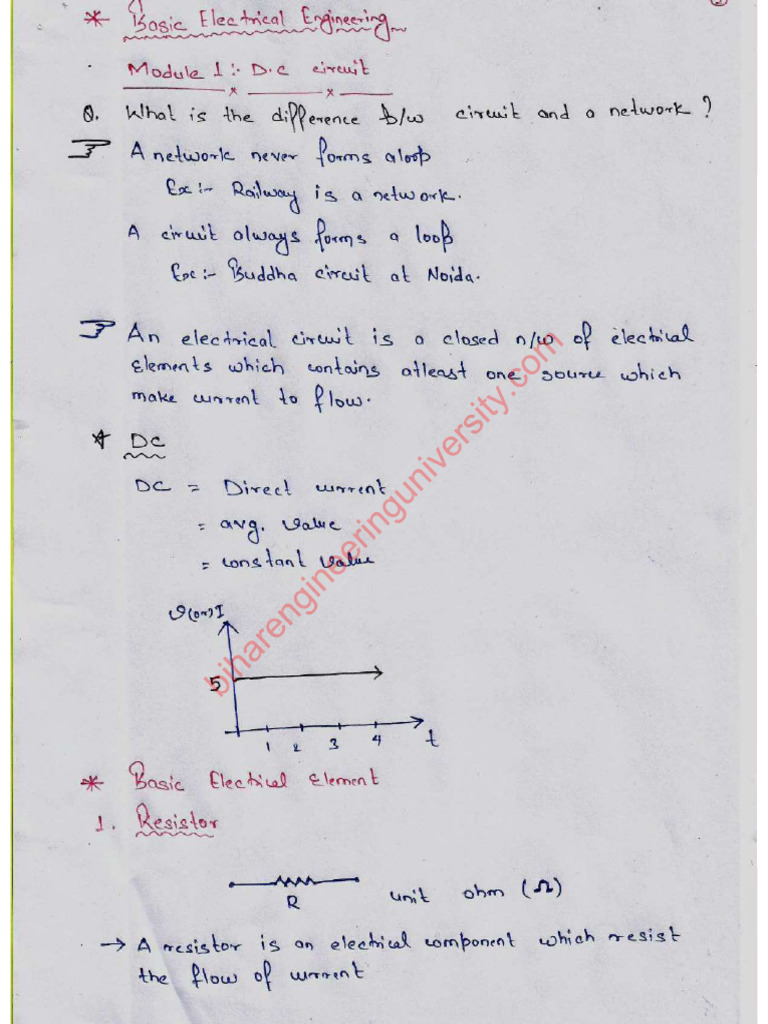 * Basic Electrical Engineering
Module 1 :- D.C circuit
Q. What is the difference b/w circuit and a network?
A network never forms a loop
Ex:- Railway is a network.
A circuit always forms a loop
Ex:- Buddha circuit at Noida.
An electrical circuit is a closed n/w of electrical
elements which contains atleast one source which
make current to flow.
* DC
DC = Direct current
= avg. value
= constant value
V(or)I
5
1 2 3 4 t
* Basic Electical Element
1. Resistor
R unit ohm (Ω)
→ A resistor is an electical component which resist
the flow of current
biharengineeringuniversity.com